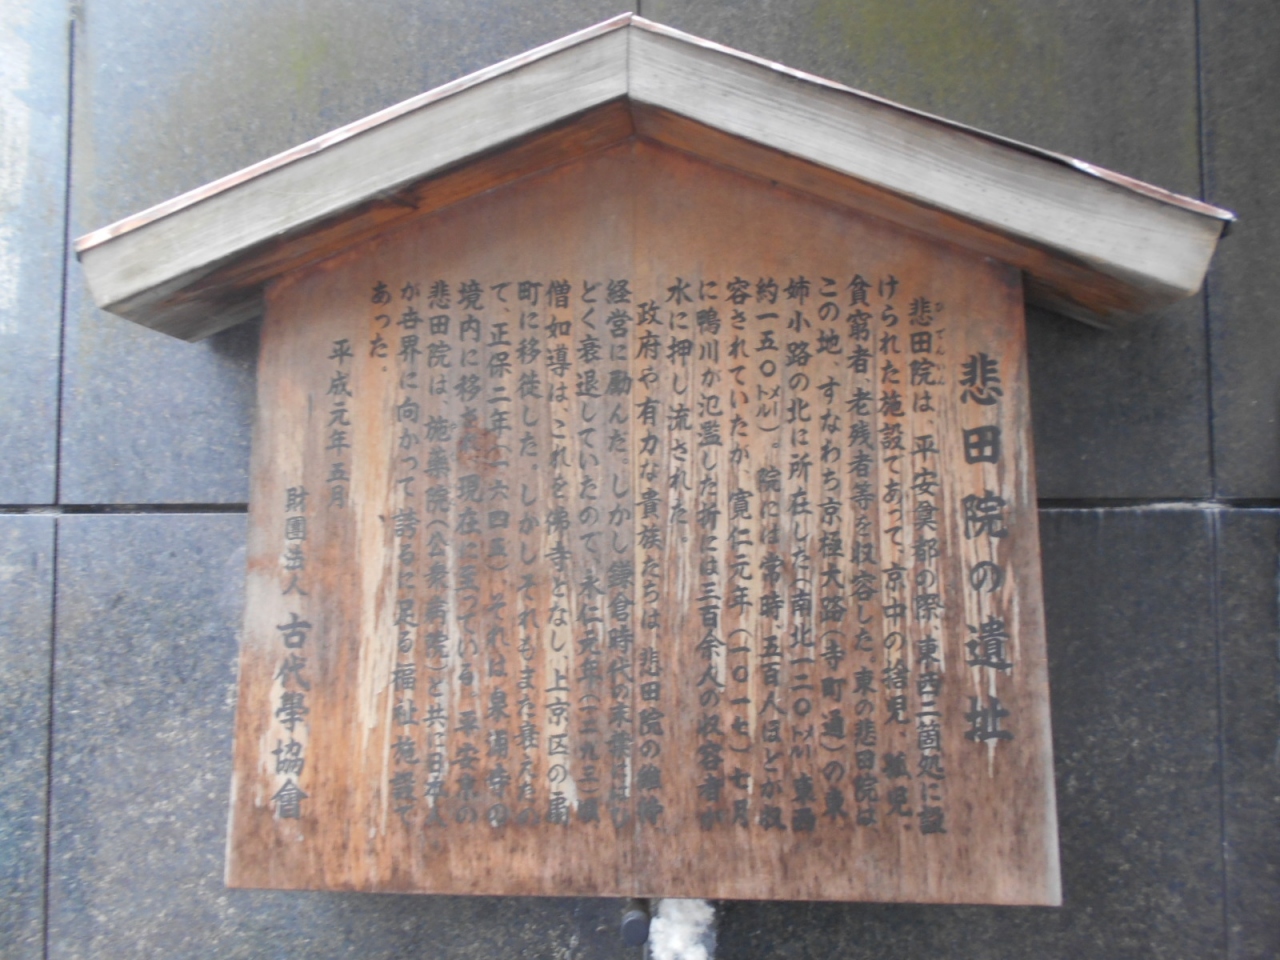 悲田院の遺址
悲田院は、平安奠都の際、東西二箇処に設
けられた施設であって、京中の捨児、孤児、
貧窮者、老残者等を収容した。東の悲田院は、
この地、すなわち京極大路(寺町通)の東、
姉小路の北に所在した(南北一二〇メートル 東西
約一五〇メートル)。院には常時、五百人ほどが収
容されていたが、寛仁元年(一〇一七)七月
に鴨川が氾濫した折には三百余人の収容者が
水に押し流された。
政府や有力な貴族たちは、悲田院の維持
経営に励んだ。しかし鎌倉時代の末葉には
どく衰退していたので、永仁元年(一二九三)頃
僧如導は、これを佛寺となし、上京区の扇
町に移徙した。しかしそれもまた衰えたの
で、正保二年(一六四五)、それは泉涌寺の
境内に移され現在に至っている。平安京の
悲田院は、施薬院(公衆病院)と共に日本人
が世界に向かって誇るに足る福祉施設で
あった。
平成元年五月
財團法人 古代學協會